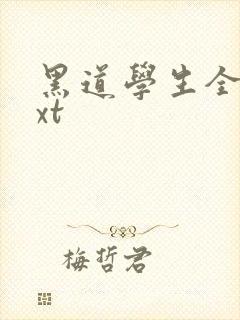 黑道學生全
xt
梅哲君